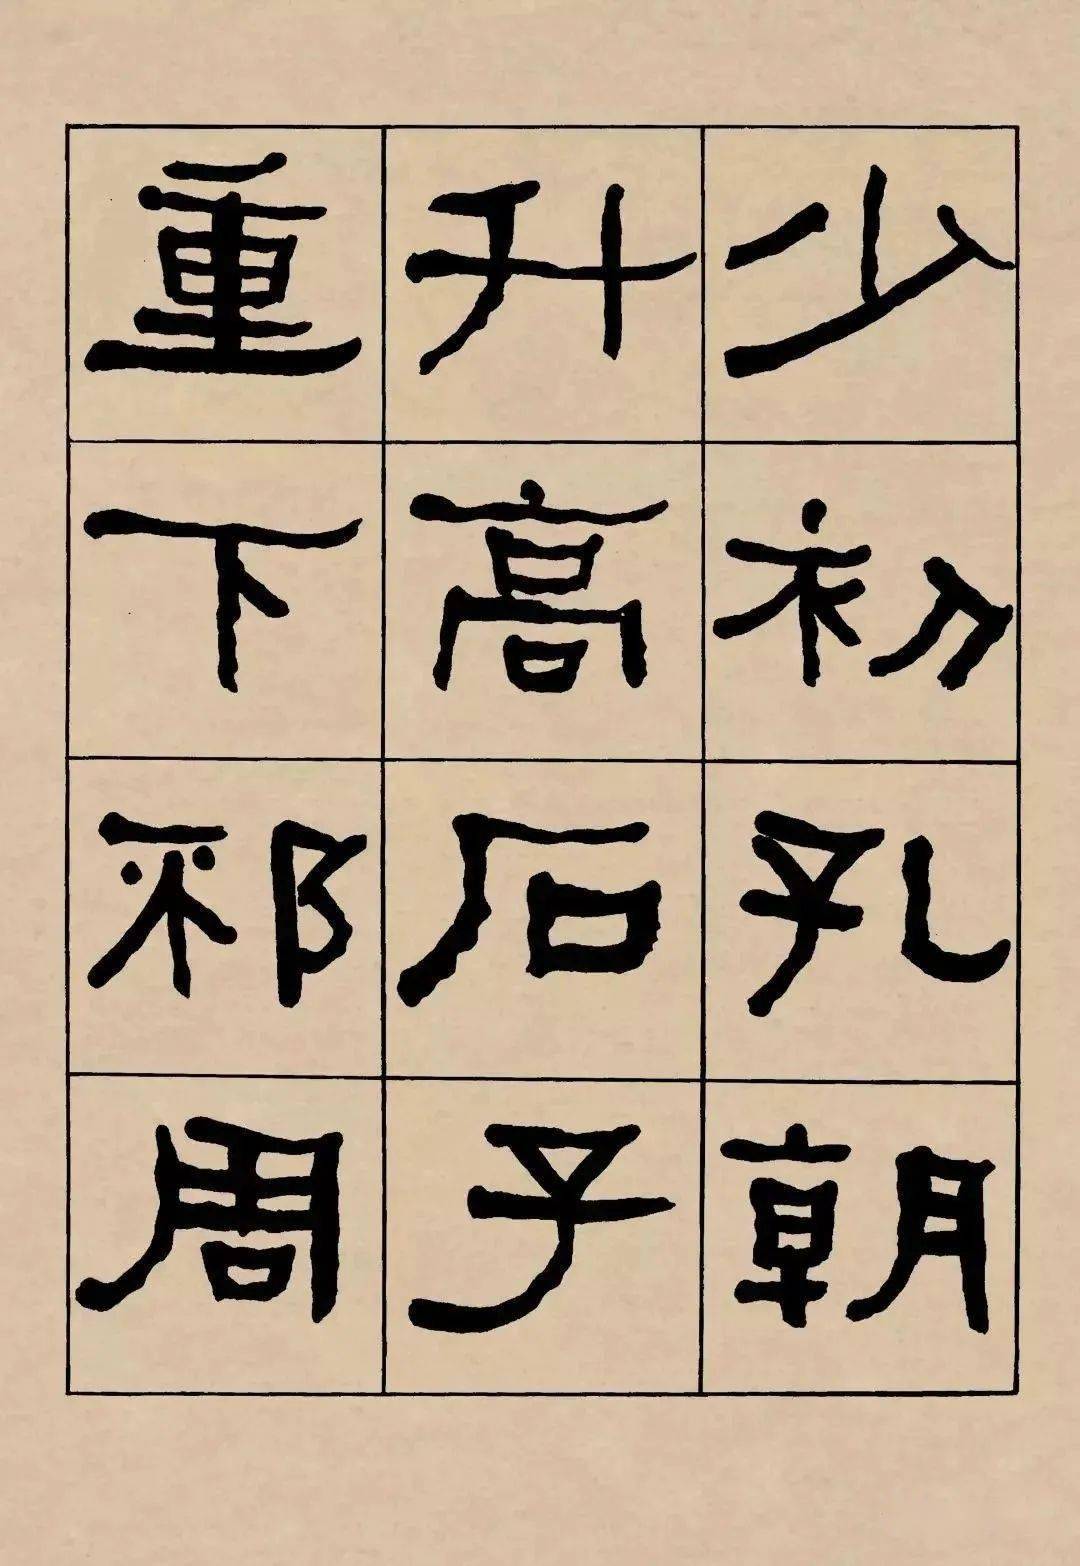 少初孔朝
升高石子
重下邪周